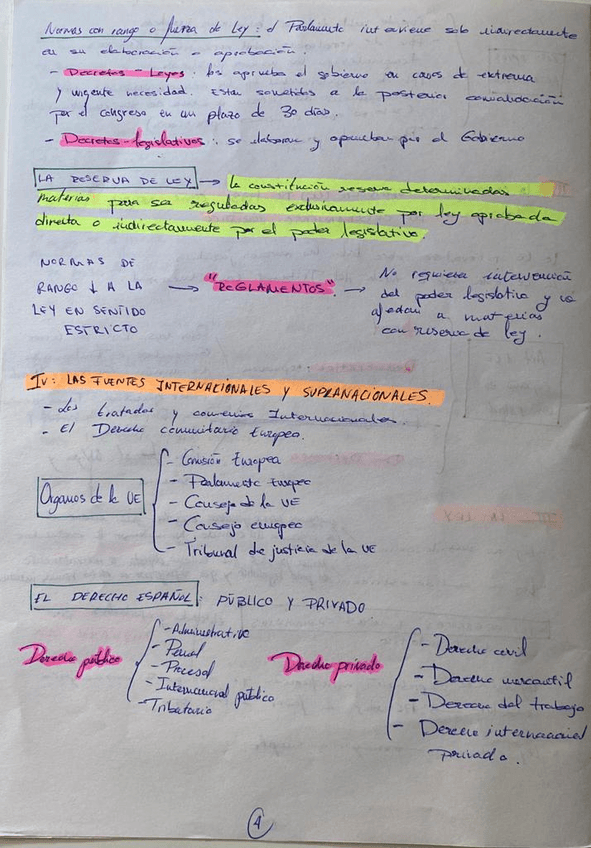 Normas con rango o fuerza de Ley: el Parlamento interviene solo indirectamente
en su elaboración o aprobación.
- Decretos-Leyes: los aprueba el gobierno en casos de extrema
y urgente necesidad. Están sometidos a la posterior convalidación
por el congreso en un plazo de 30 días.
- Decretos-legislativos: se elaboran y aprueban por el Gobierno
LA RESERVA DE LEY → la constitución reserva determinadas
materias para ser reguladas exclusivamente por ley aprobada
directa o indirectamente por el poder legislativo.
NORMAS DE
RANGO ↓ A LA
LEY EN SENTIDO
ESTRICTO
→ "REGLAMENTOS" →
No requieren intervención
del poder legislativo y no
afectan a materias
con reserva de ley.
IV: LAS FUENTES INTERNACIONALES Y SUPRANACIONALES.
- Los tratados y convenios Internacionales.
- El Derecho comunitario Europeo.
Organos de la UE
- Comisión Europea
- Parlamento Europeo
- Consejo de la UE
- Consejo europeo
- Tribunal de justicia de la UE
EL DERECHO ESPAÑOL: PÚBLICO Y PRIVADO
Derecho público
- Administrativo
- Penal
- Procesal
- Internacional público
- Tributario
Derecho privado
- Derecho civil
- Derecho mercantil
- Derecho del trabajo
- Derecho internacional
privado.
4